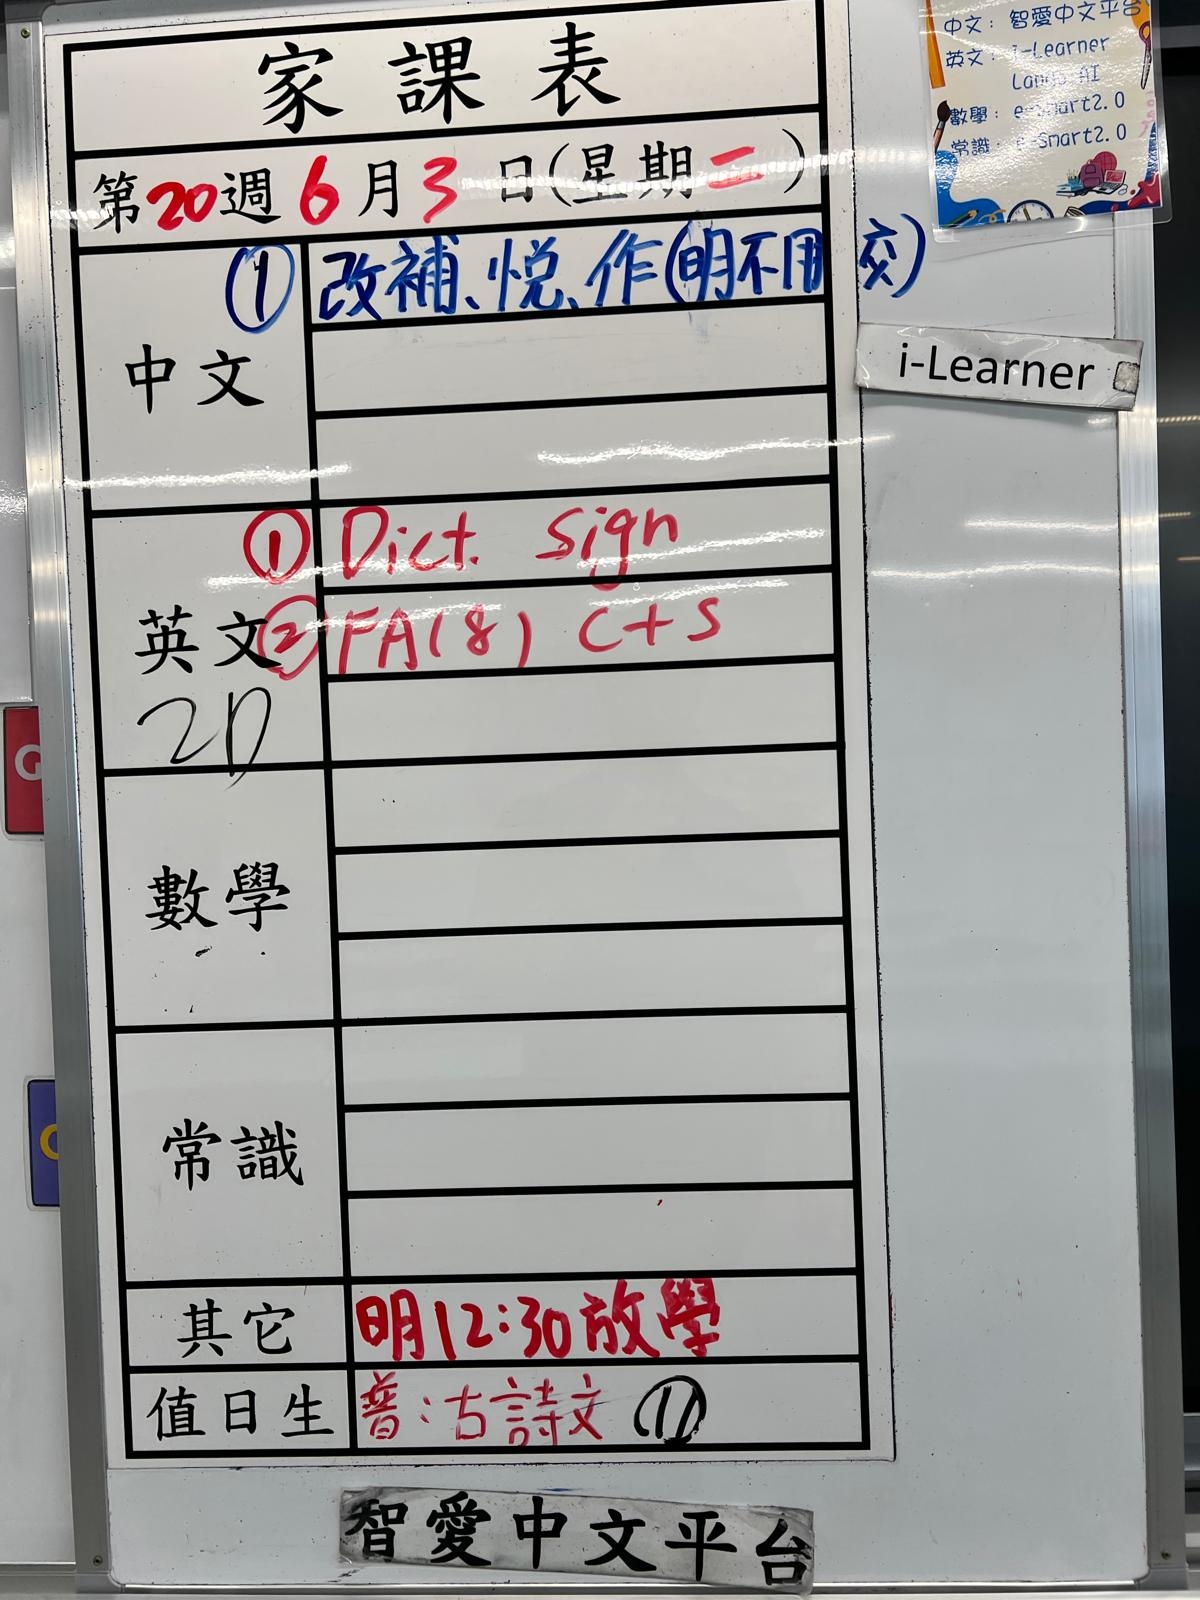 家課表
第20週6月3日(星期二)
中文
①改補、悅、作(明不用交)
英文
2D
①Dict. sign
②FA(8) C+S
數學
常識
其它
明12:30放學
值日生
普:古詩文 ⑪
智愛中文平台
i-Learner
中文: 智愛中文平台
英文: i-Learner
AI
數學: e-Smart2.0
常識: e-Smart2.0